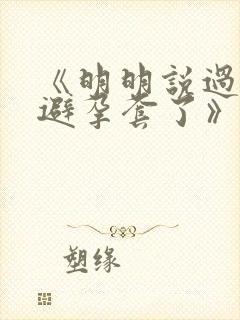 《明明說過
避孕套了》
塑缘